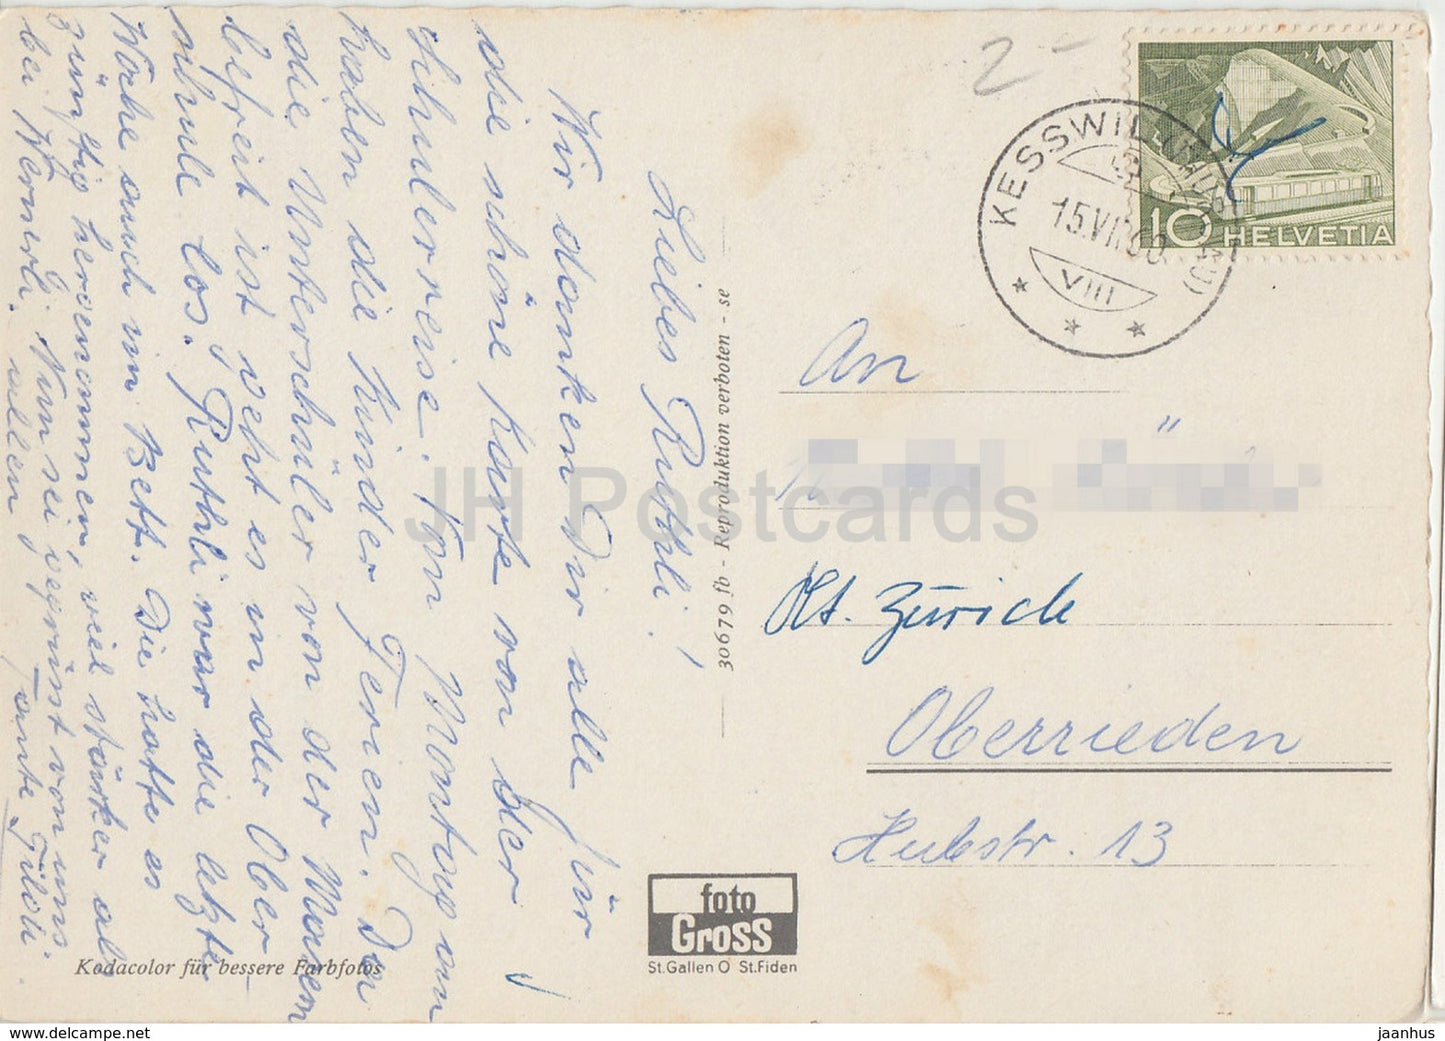 Liebes Ruthli!
Wir danken Dir alle für
die schöne Karte von der
Schulerreise. Vom Montag an
haben die Kinder Ferien. Dan
die Unterschüler von der Masern
befreit ist geht es in der Ober
schule los. Ruthli war die letzte
Woche auch im Bett. Die hatte es
zünftig hergenommen, viel stärker als
bei Wernerli. Nun sei gegrüsst von uns
allen Tante
30679 fb - Reproduktion verboten - se
Kodacolor für bessere Farbfotos
foto
Gross
St.Gallen O St.Fiden
2-
KESSWIL
15.VII.60
VIII
10 HELVETIA
An
Kt. Zürich
Oberrieden
Hubstr. 13
JH Postcards
www.delcampe.net
jaanhus